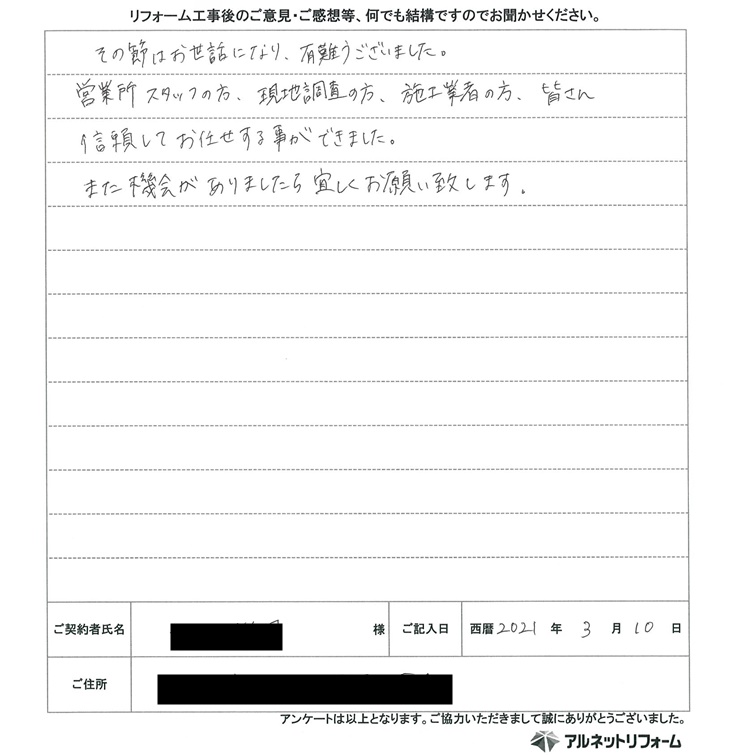 リフォーム工事後のご意見・ご感想等、何でも結構ですのでお聞かせください。
その節はお世話になり、有難うございました。
営業所スタッフの方、現地調査の方、施工業者の方、皆さん
信頼してお任せする事ができました。
また機会がありましたら宜しくお願い致します。
ご契約者氏名 様 ご記入日 西暦2021年3月10日
ご住所
アンケートは以上となります。ご協力いただきまして誠にありがとうございました。
アルネットリフォーム